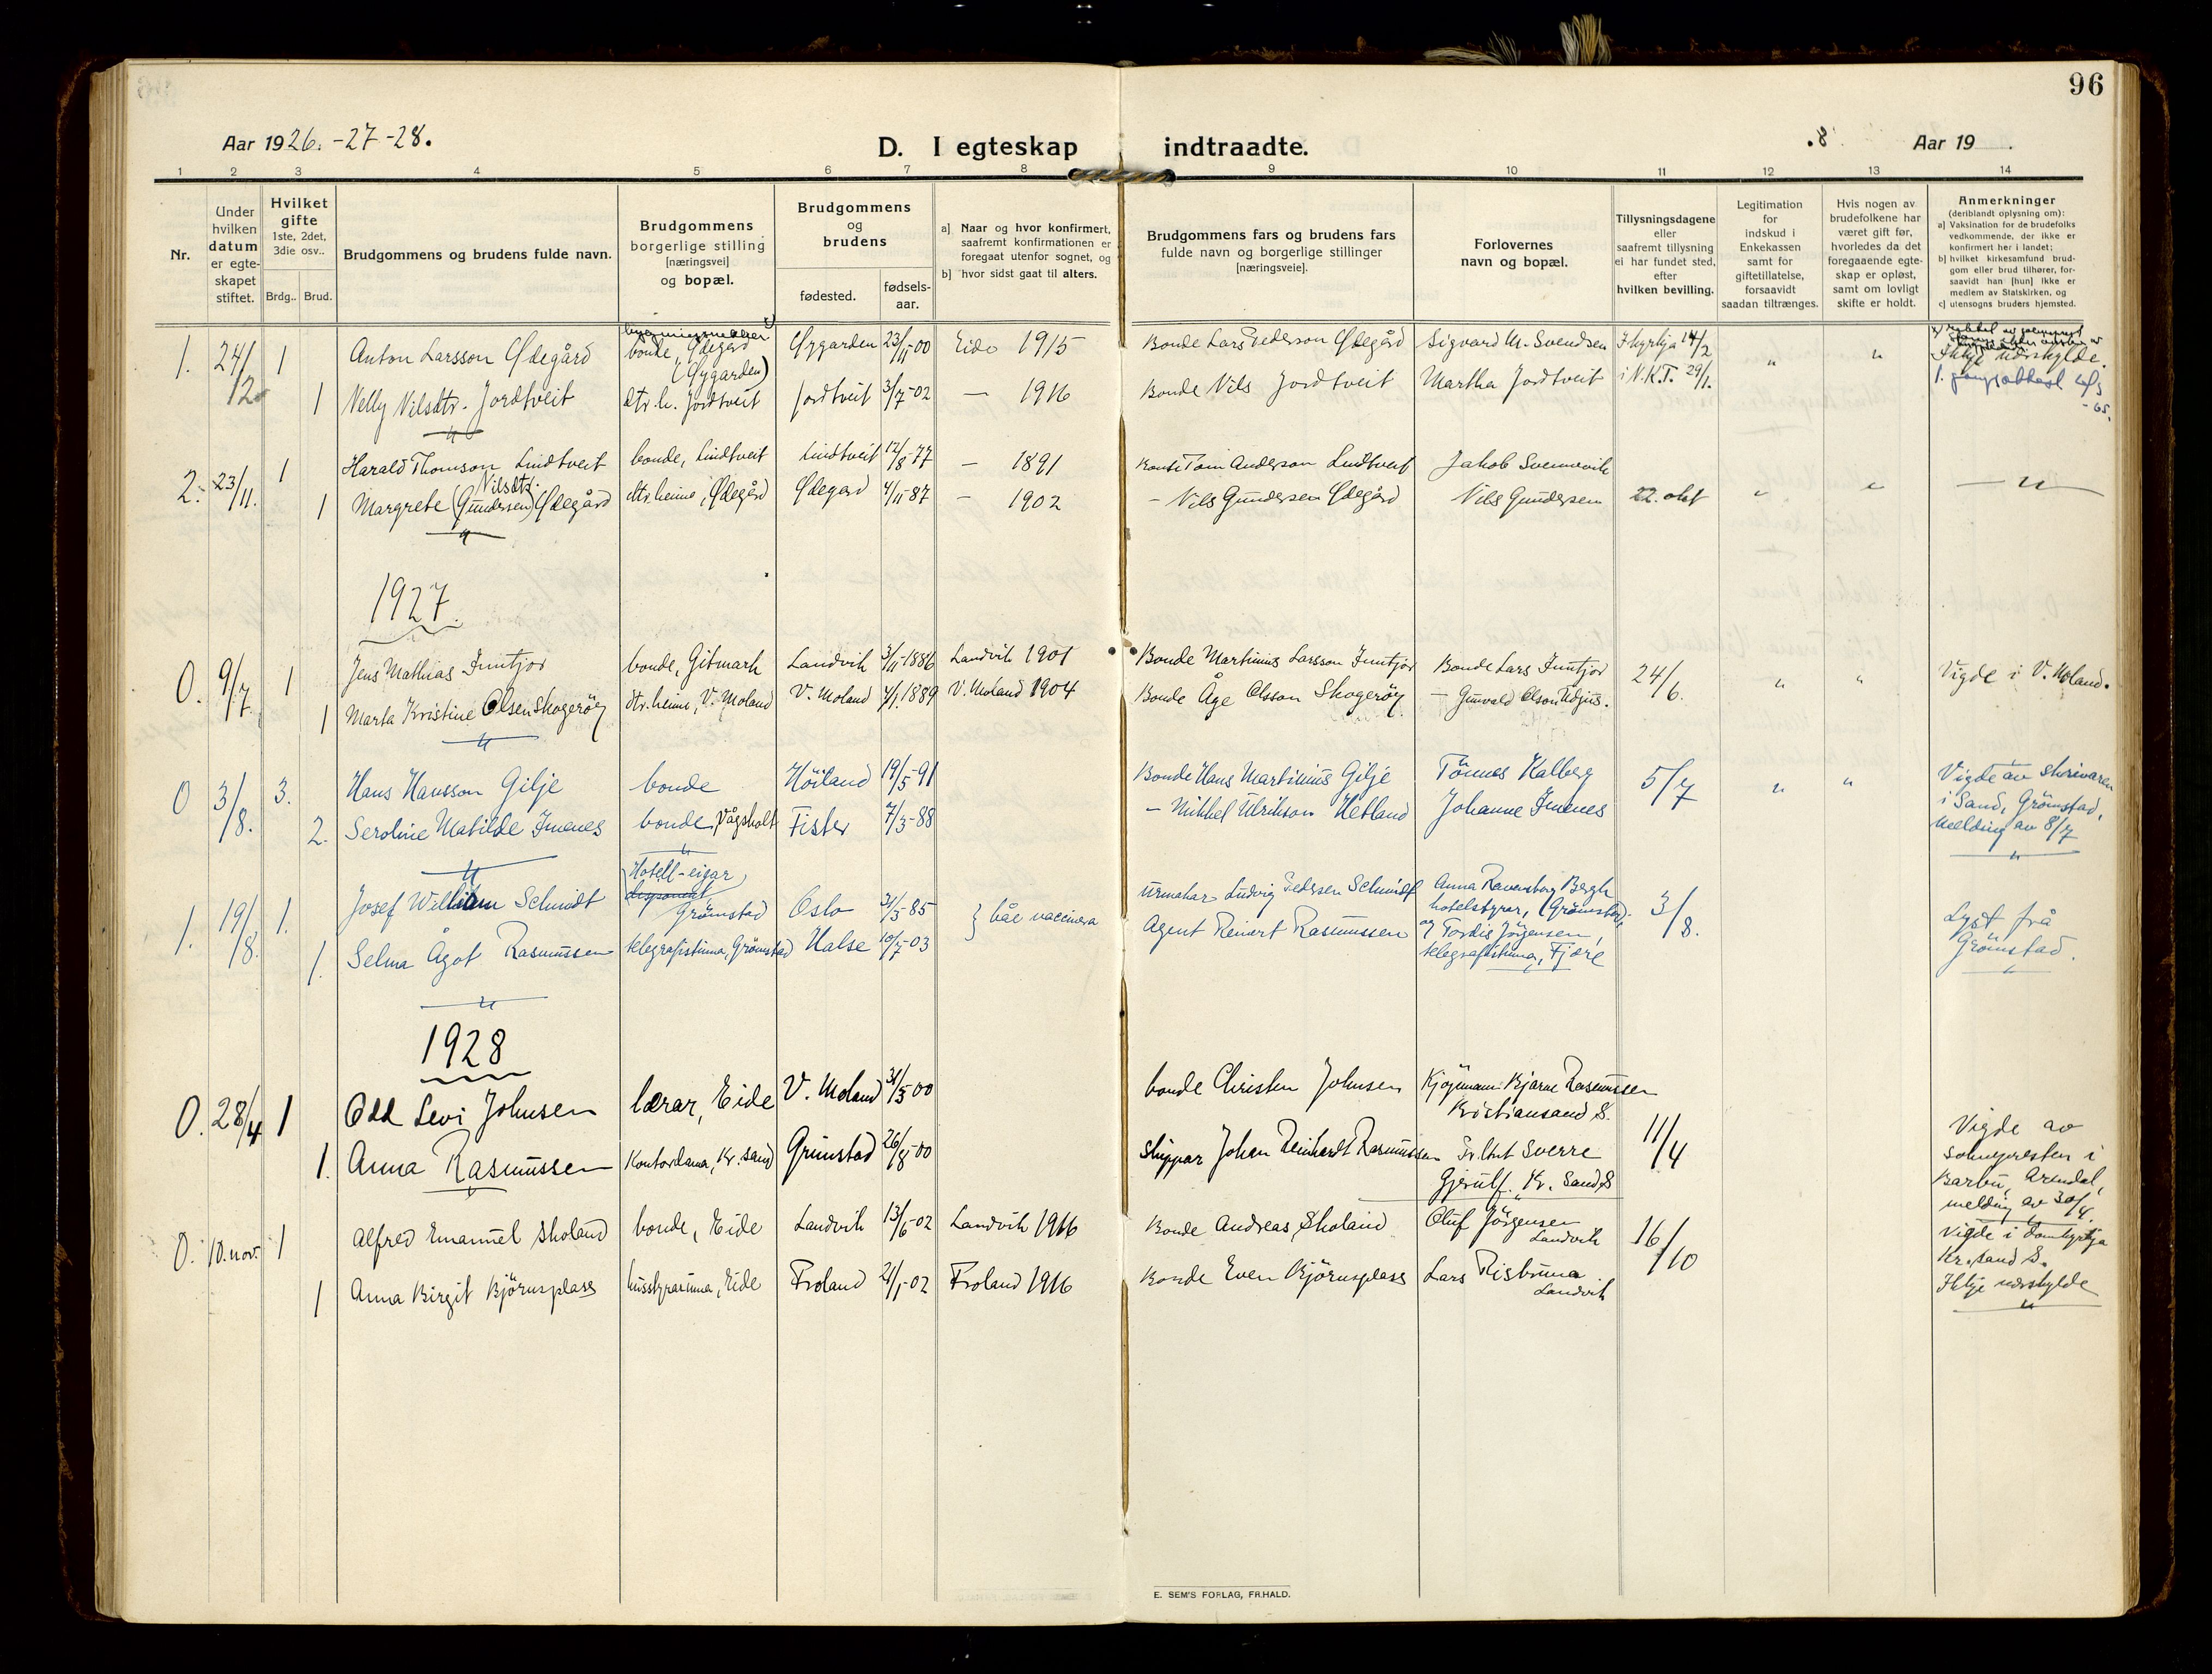 96
Aar 1926.-27-28.
D. I egteskap indtraadte.
.8
Aar 19 .
1 2 3 4 5 6 7 8 9 10 11 12 13 14
Nr.
Under hvilken datum er egte-skapet stiftet.
Hvilket gifte 1ste, 2det, 3die osv..
Brdg.. Brud.
Brudgommens og brudens fulde navn.
Brudgommens borgerlige stilling [næringsvei] og bopæl.
Brudgommens og brudens
fødested.
fødsels-aar.
a] Naar og hvor konfirmert, saafremt konfirmationen er foregaat utenfor sognet, og
b] hvor sidst gaat til alters.
Brudgommens fars og brudens fars fulde navn og borgerlige stillinger [næringsveie].
Forlovernes navn og bopæl.
Tillysningsdagene eller saafremt tillysning ei har fundet sted, efter hvilken bevilling.
Legitimation for indskud i Enkekassen samt for giftetillatelse, forsaavidt saadan tiltrænges.
Hvis nogen av brudefolkene har været gift før, hvorledes da det foregaaende egte-skap er opløst, samt om lovligt skifte er holdt.
Anmerkninger (deriblandt oplysning om):
a) Vaksination for de brudefolks vedkommende, der ikke er konfirmert her i landet;
b) hvilket kirkesamfund brud-gom eller brud tilhører, for-saavidt han [hun] ikke er medlem av Statskirken, og
c) utensogns bruders hjemsted.
1. 24/12 1 Anton Larsson Ødegård bonde, Ødegård (Øygarden) Øygarden 23/11-00 Eide 1915 Bonde Lars Pederson Ødegård Sigvard M. Svendsen I kyrkja 14/2 " " Ikkje udrskylde.
1 Nelly Nilsdtr. Jordtveit dtr. h. Jordtveit Jordtveit 3/7-02 — 1916 Bonde Nils Jordtveit Martha Jordtveit i N.K.T. 29/1.
2. 23/11. 1 Harald Thomson Lindtveit bonde, Lindtveit Lindtveit 12/8-77 — 1891 Bonde Tom Anderson Lindtveit Jakob Svennevik
Nilsdtr.
1 Margrete (Gundersen) Ødegård dtr. heime, Ødegård Ødegard 4/11-87 — 1902 — Nils Gundersen Ødegård Nils Gundersen 22. okt " " — " —
1927.
0. 9/7. 1 Jens Mathias Inntjor bonde, Gitmark Landvik 3/11-1886 Landvik 1901 Bonde Martinius Larsson Inntjor Bonde Lars Inntjor 24/6. " " Vigde i V. Moland.
1 Marta Kristine Olsen Skogerøy dtr. heime, V. Moland V. Moland 4/1.1889 V. Moland 1904 Bonde Åge Olsson Skogerøy — Gunvald Olson Udjus.
0 3/8. 3. Hans Hansson Gilje bonde Höiland 19/5-91 Bonde Hans Martinius Gilje Tönnes Kalberg 5/7 " " Vigde av skrivaren
2. Seroline Matilde Imenes bonde, Vågsholt Fister 7/3-88 — Mikkel Ulrikson Hetland Johanne Imenes i Sand, Grömstad,
Melding av 8/7
Hotell-eigar
1. 19/8. 1. Josef William Schmidt Grömstad Oslo 31/3-85 } båe vaccinera urmakar Ludvig Pedersen Schmidt Anna Ravensborg Bergh
hotelstyrar, (Grömstad), 3/8. Lyst frå
1. Selma Ågot Rasmussen telegrafistinna, Grömstad Halse 10/7-03 Agent Reinert Rasmussen og Tordis Jörgensen, Grömstad.
telegrafistinna, Fjære
1928
0. 28/4 1 Odd Levi Johnsen lærar, Eide V. Moland 31/5 00 bonde Christen Johnsen Kjøpmann Bjarne Rasmussen
Kristiansand S. 11/4 Vigde av
1. Anna Rasmussen Kontordama, Kr. sand Grimstad 26/8-00 skippar Johan Reinhardt Rasmussen Sverre sokneprесten i
Gjerulf. Kr. Sand S Barbu, Arendal,
melding av 30/4.
0. 10. nov. 1 Alfred Emanuel Skoland bonde, Eide Landvik 13/6-02 Landvik 1916 Bonde Andreas Skoland Oluf Jörgensen
Landvik 16/10 Vigde i Domkyrkja
1 Anna Birgit Björnsplass husstyrarinna, Eide Froland 21/1-02 Froland 1916 Bonde Even Björnsplass Lars Risbruna Kr. sand S.
Landvik Ikkje udrskylde
E. SEM'S FORLAG, FR.HALD.